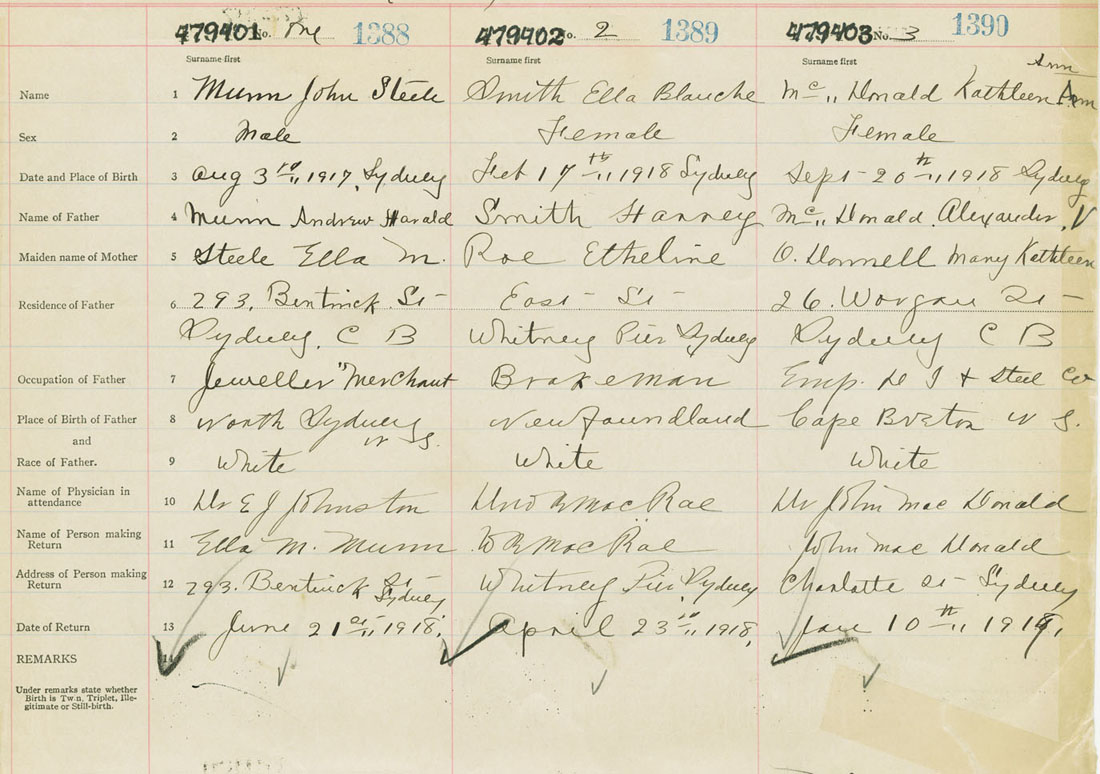 479401 No. One 1388 479402 No. 2 1389 479403 No. 3 1390
Surname first Surname first Surname first
Ann
Name 1 Munn John Steele Smith Ella Blanche Mc,, Donald Kathleen Ann
Sex 2 Male Female Female
Date and Place of Birth 3 Aug 3rd,, 1917, Sydney Feb 17th,, 1918 Sydney Sept - 20th,, 1918 Sydney
Name of Father 4 Munn Andrew Harald Smith Harvey Mc,, Donald Alexander, V
Maiden name of Mother 5 Steele Ella M. Roe Etheline O. Donnell Mary Kathleen
Residence of Father 6 293, Bentinck St - East - St - 26. Worgan St -
Sydney, C B Whitney Pier Sydney Sydney C B
Occupation of Father 7 Jeweller "Merchant Brakeman Emp. D I & Steel Co
Place of Birth of Father 8 North Sydney Newfoundland Cape Breton N S.
and N S.
Race of Father. 9 White White White
Name of Physician in
attendance 10 Dr E J Johnston Dr W R MacRae Dr John Mac Donald
Name of Person making
Return 11 Ella M. Munn W R MacRae John Mac Donald
Address of Person making
Return 12 293. Bentinck St - Sydney Whitney Pier, Sydney Charlotte St - Sydney
Date of Return 13 June 21st,, 1918, April 23rd,, 1918, Jan 10th,, 1919,
REMARKS 14
Under remarks state whether
Birth is Twin, Triplet, Ille-
gitimate or Still-birth.